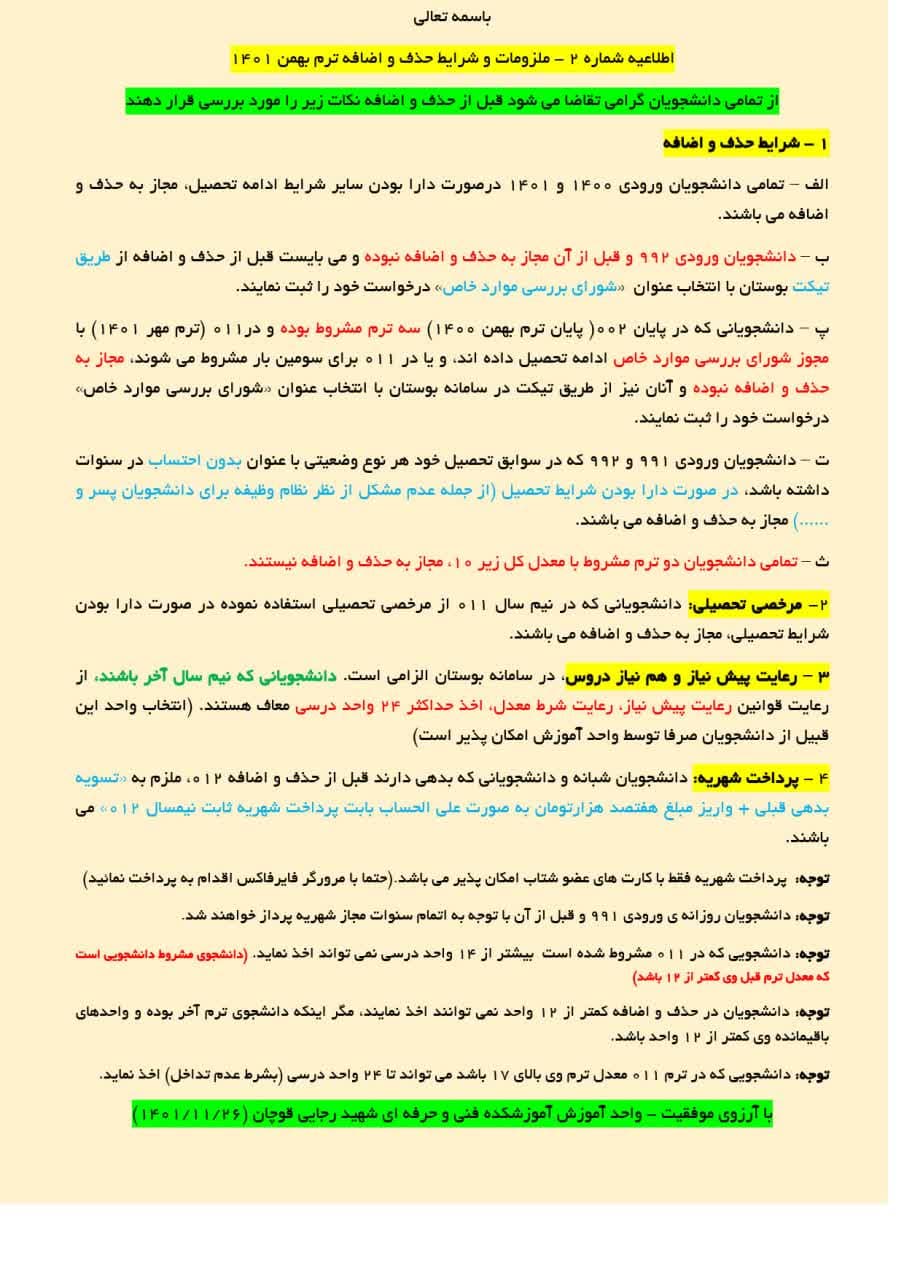 باسمه تعالی
اطلاعیه شماره ۲ - ملزومات و شرایط حذف و اضافه ترم بهمن ۱۴۰۱
از تمامی دانشجویان گرامی تقاضا می شود قبل از حذف و اضافه نکات زیر را مورد بررسی قرار دهند
۱ - شرایط حذف و اضافه
الف – تمامی دانشجویان ورودی ۱۴۰۰ و ۱۴۰۱ درصورت دارا بودن سایر شرایط ادامه تحصیل، مجاز به حذف و
اضافه می باشند.
ب – دانشجویان ورودی ۹۹۲ و قبل از آن مجاز به حذف و اضافه نبوده و می بایست قبل از حذف و اضافه از طریق
تیکت بوستان با انتخاب عنوان «شورای بررسی موارد خاص» درخواست خود را ثبت نمایند.
پ – دانشجویانی که در پایان ۰۰۲( پایان ترم بهمن ۱۴۰۰) سه ترم مشروط بوده و در۰۱۱ (ترم مهر ۱۴۰۱) با
مجوز شورای بررسی موارد خاص ادامه تحصیل داده اند، و یا در ۰۱۱ برای سومین بار مشروط می شوند، مجاز به
حذف و اضافه نبوده و آنان نیز از طریق تیکت در سامانه بوستان با انتخاب عنوان «شورای بررسی موارد خاص»
درخواست خود را ثبت نمایند.
ت – دانشجویان ورودی ۹۹۱ و ۹۹۲ که در سوابق تحصیل خود هر نوع وضعیتی با عنوان بدون احتساب در سنوات
داشته باشد، در صورت دارا بودن شرایط تحصیل (از جمله عدم مشکل از نظر نظام وظیفه برای دانشجویان پسر و
......) مجاز به حذف و اضافه می باشند.
ث – تمامی دانشجویان دو ترم مشروط با معدل کل زیر ۱۰، مجاز به حذف و اضافه نیستند.
۲- مرخصی تحصیلی: دانشجویانی که در نیم سال ۰۱۱ از مرخصی تحصیلی استفاده نموده در صورت دارا بودن
شرایط تحصیلی، مجاز به حذف و اضافه می باشند.
۳ - رعایت پیش نیاز و هم نیاز دروس، در سامانه بوستان الزامی است. دانشجویانی که نیم سال آخر باشند، از
رعایت قوانین رعایت پیش نیاز، رعایت شرط معدل، اخذ حداکثر ۲۴ واحد درسی معاف هستند. (انتخاب واحد این
قبیل از دانشجویان صرفا توسط واحد آموزش امکان پذیر است)
۴ - پرداخت شهریه: دانشجویان شبانه و دانشجویانی که بدهی دارند قبل از حذف و اضافه ۰۱۲، ملزم به «تسویه
بدهی قبلی + واریز مبلغ هفتصد هزارتومان به صورت علی الحساب بابت پرداخت شهریه ثابت نیمسال ۰۱۲» می
باشند.
توجه: پرداخت شهریه فقط با کارت های عضو شتاب امکان پذیر می باشد.(حتما با مرورگر فایرفاکس اقدام به پرداخت نمائید)
توجه: دانشجویان روزانه ی ورودی ۹۹۱ و قبل از آن با توجه به اتمام سنوات مجاز شهریه پرداز خواهند شد.
توجه: دانشجویی که در ۰۱۱ مشروط شده است بیشتر از ۱۴ واحد درسی نمی تواند اخذ نماید. (دانشجوی مشروط دانشجویی است
که معدل ترم قبل وی کمتر از ۱۲ باشد)
توجه: دانشجویان در حذف و اضافه کمتر از ۱۲ واحد نمی توانند اخذ نمایند، مگر اینکه دانشجوی ترم آخر بوده و واحدهای
باقیمانده وی کمتر از ۱۲ واحد باشد.
توجه: دانشجویی که در ترم ۰۱۱ معدل ترم وی بالای ۱۷ باشد می تواند تا ۲۴ واحد درسی (بشرط عدم تداخل) اخذ نماید.
با آرزوی موفقیت - واحد آموزش آموزشکده فنی و حرفه ای شهید رجایی قوچان (۱۴۰۱/۱۱/۲۶)